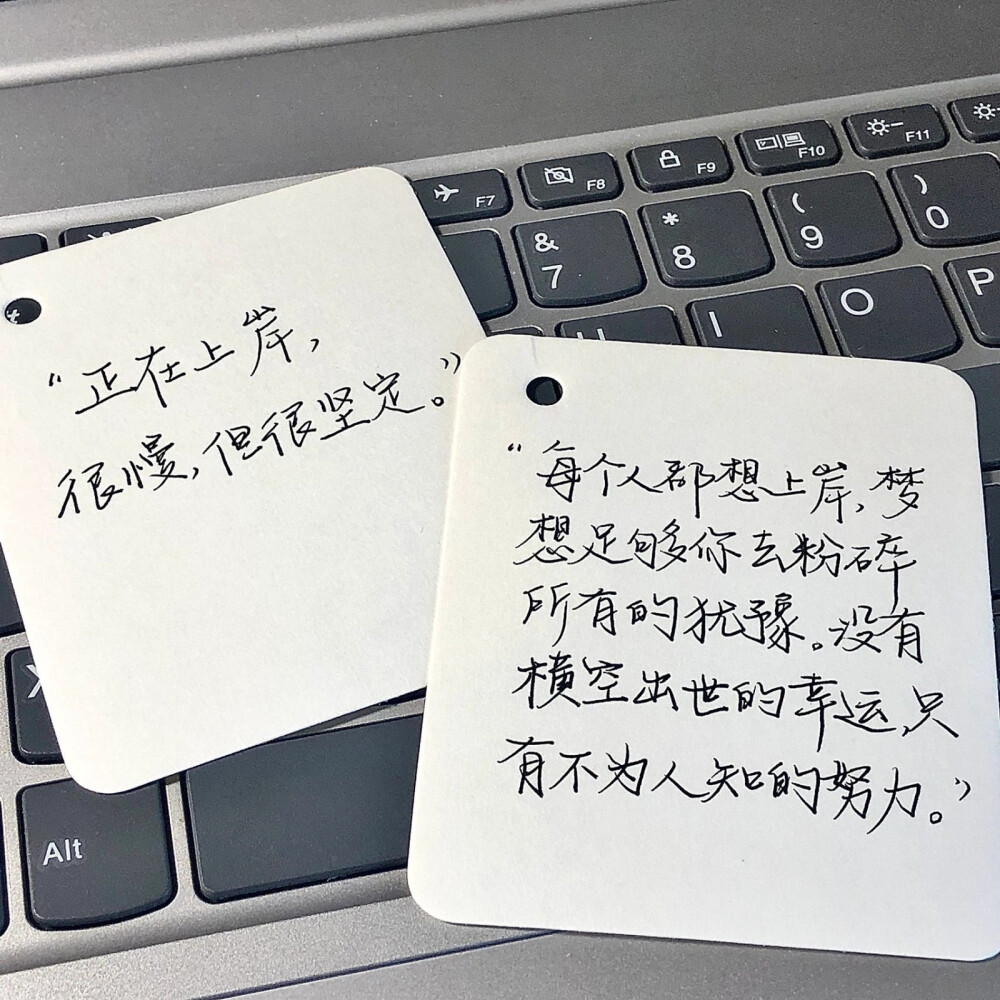 “正在上岸，
很慢，但很坚定。”
“每个人都想上岸，梦
想足够你去粉碎
所有的犹豫。没有
横空出世的幸运，只
有不为人知的努力。”
F7
F8
F9
F10
F11
&
7
*
8
(
9
)
0
U
I
O
P
X
Alt